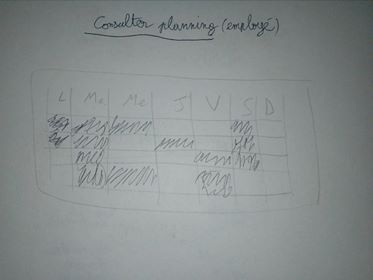 Consulter planning (employé)
L Ma Me J V S D